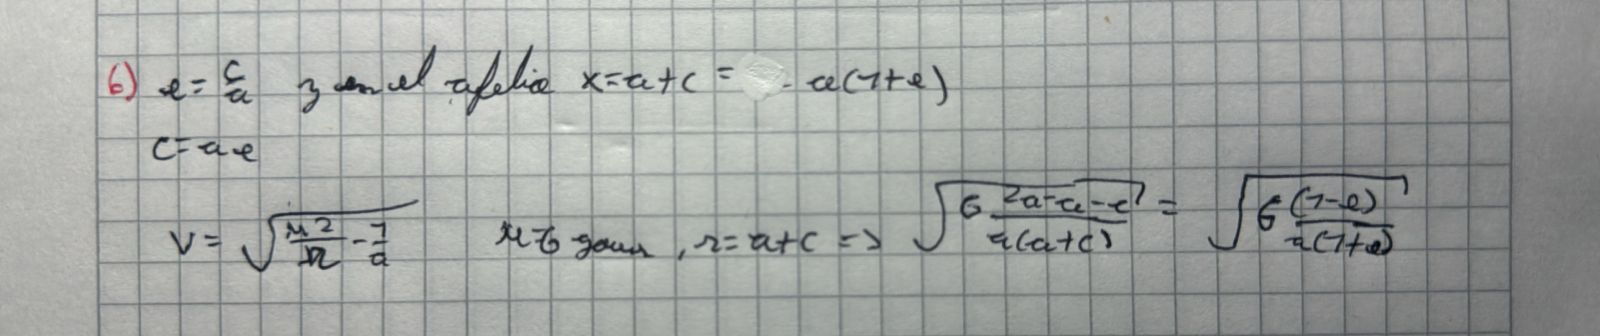 6) e = c/a y en el afelio x = a + c = a(1+e)
c = a e
v = √(μ2/r - 1/a) μ=G , r = a + c => √(G (2a-a-c)/(a(a+c))) = √(G (1-e)/(a(1+e)))